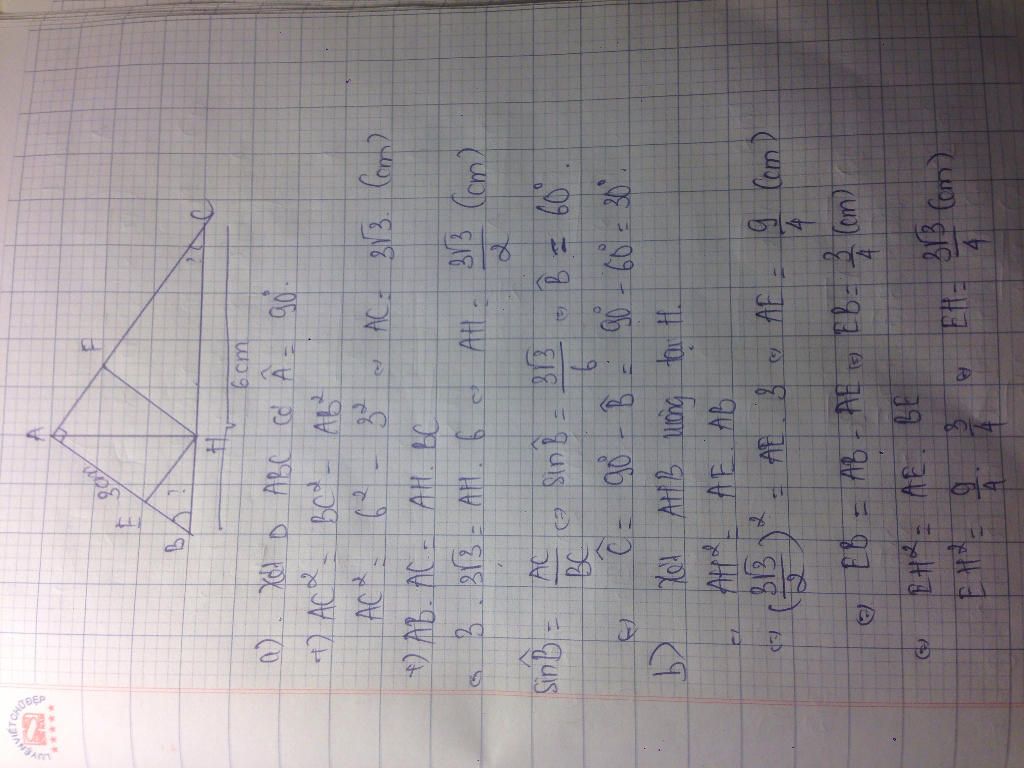 A
E
3cm
F
B
?
H
?
C
6cm
a). Xét Δ ABC có Â = 90°.
+) AC² = BC² - AB²
AC² = 6² - 3² ⇔ AC = 3√3. (cm)
+) AB. AC = AH. BC
⇔ 3. 3√3 = AH. 6 ⇔ AH = 3√3/2 (cm)
Sin B̂ = AC/BC ⇔ Sin B̂ = 3√3/6 ⇔ B̂ = 60°.
⇔ Ĉ = 90° - B̂ = 90° - 60° = 30°.
b) Xét AHB vuông tại H.
AH² = AE. AB
⇔ (3√3/2)² = AE. 3 ⇔ AE = 9/4 (cm)
⇔ EB = AB - AE ⇔ EB = 3/4 (cm)
⇔ EH² = AE. BE
EH² = 9/4. 3/4 ⇔ EH = 3√3/4 (cm)
LUYỆN VIẾT CHỮ ĐẸP